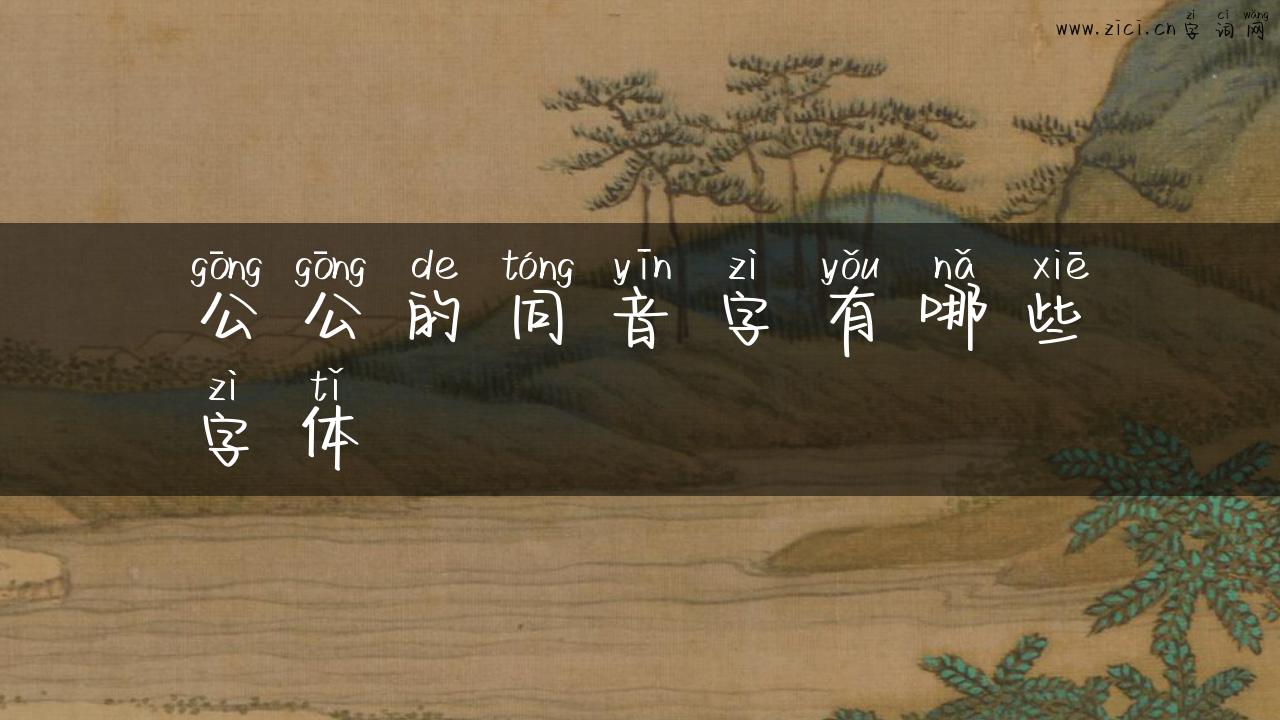 zì cí wǎng
www.zici.cn 字词网
gōng gōng de tóng yīn zì yǒu nǎ xiē
公公的同音字有哪些
zì tǐ
字体